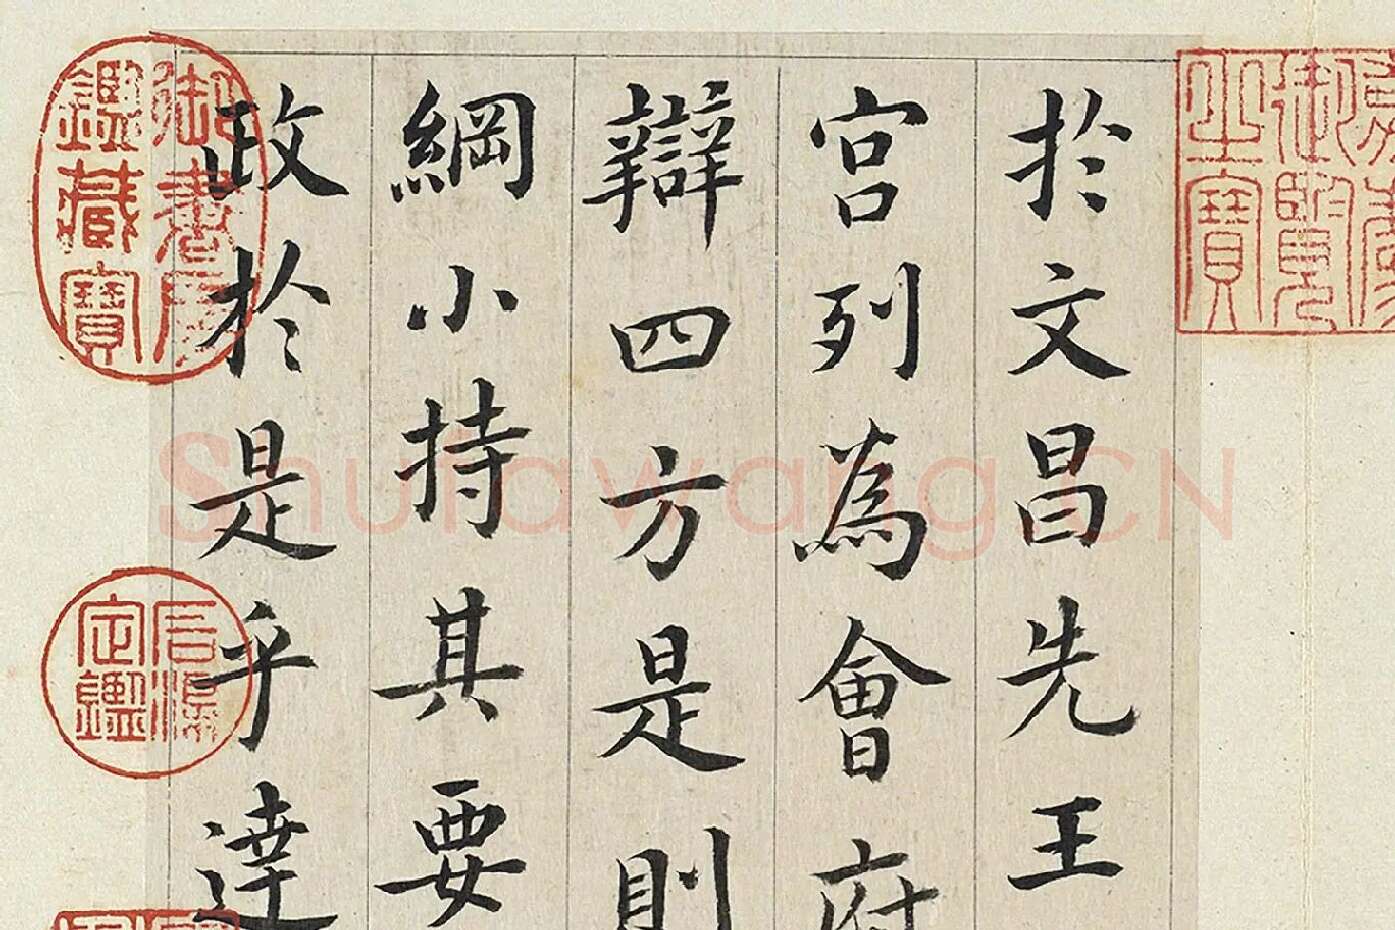 御覽
之寶
於文昌先王
宫列為會府
辯四方是則
綱小持其要
政於是乎達
御書房
鑑藏寶
石渠
定鑑
Shufawang.CN